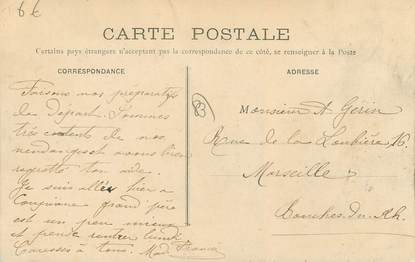 6 €
CARTE POSTALE
Certains pays étrangers n'acceptant pas la correspondance de ce côté, se renseigner à la Poste
CORRESPONDANCE
ADRESSE
83
Faisons nos préparatifs
de Départ. Sommes
très contents de nos
vendanges avons bien
regretté ton aide.
Je suis allée hier à
grand père
est un peu mieux
et pense rentrer lundi
Caresses à tous.
Monsieur A. Gérin
Rue de la Loubière 16.
Marseille
Bouches-du-Rh.